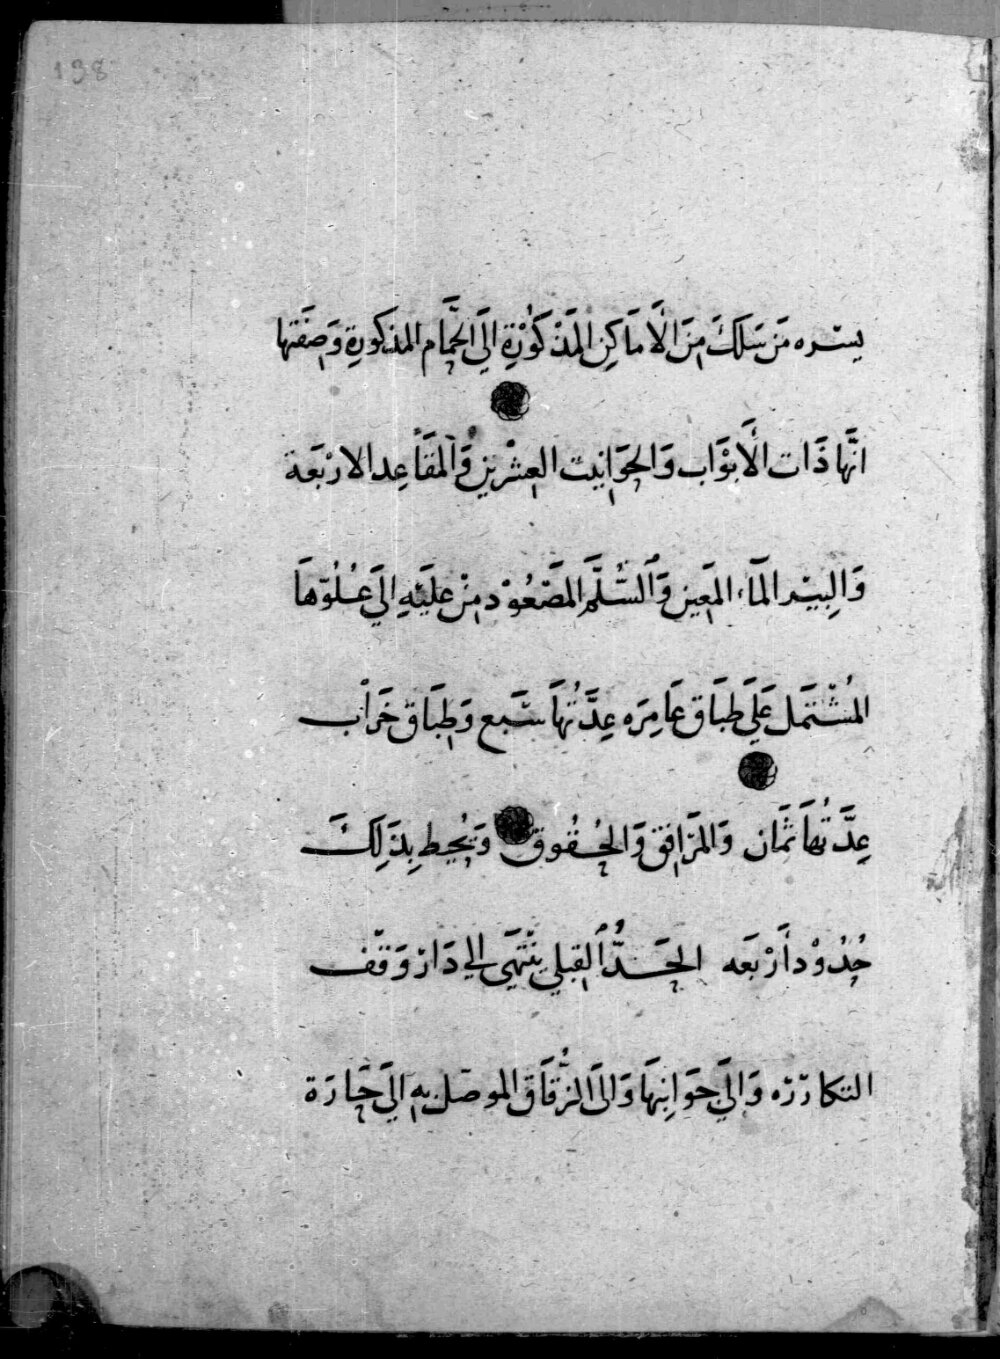 198
يسره مَن سَلَكَ مِنَ الأَمَاكِنِ المَذْكُوْرَةِ الَى الحَمَّام المذكورةِ وَصِفَتها
انَّها ذَات الأَبوَاب وَالحَوَانيت العِشْرين وَالمقَاعِد الاربَعة
وَالبِيْر المآء المَعين وَالسُّلَّم المَصْعُوْد مِنْ عَلَيْهِ الَي عُلُوّهَا
المُشْتمَل عَلَي طبَاق عَامِرَه عِدَّتُهَا سَبع وَطِبَاق خَرَاب
عِدَّتُهَا ثَمَان وَالمَرَافق وَالحُقُوق وَيُحيط بِذَلِكَ
حُدُوْد أَرْبَعَه الحَدُّ القبلي يَنْتَهَي الي دَار وَقف
التكاررَه وَالَي حوَانِيهَا وَالَى الزُقَاق الموصل بهِ الَي حَارَة